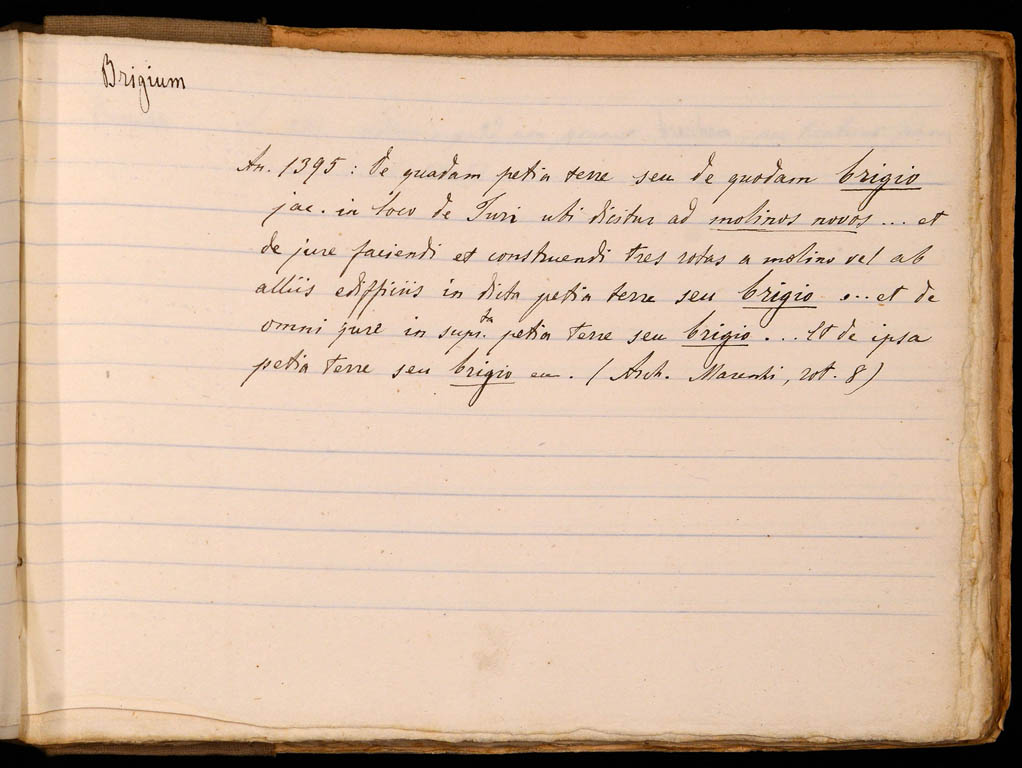 Brigium
An. 1395 : de quadam petia terre seu de quodam brigio
jac. in loco de Turi ubi dicitur ad molinos novos ... et
de jure faciendi et construendi tres rotas a molino vel ab
alliis edifficiis in dicta petia terre seu brigio ... et de
omni jure in supr.ta petia terre seu brigio ... Et de ipsa
petia terre seu brigio (Arch. rot. 8)